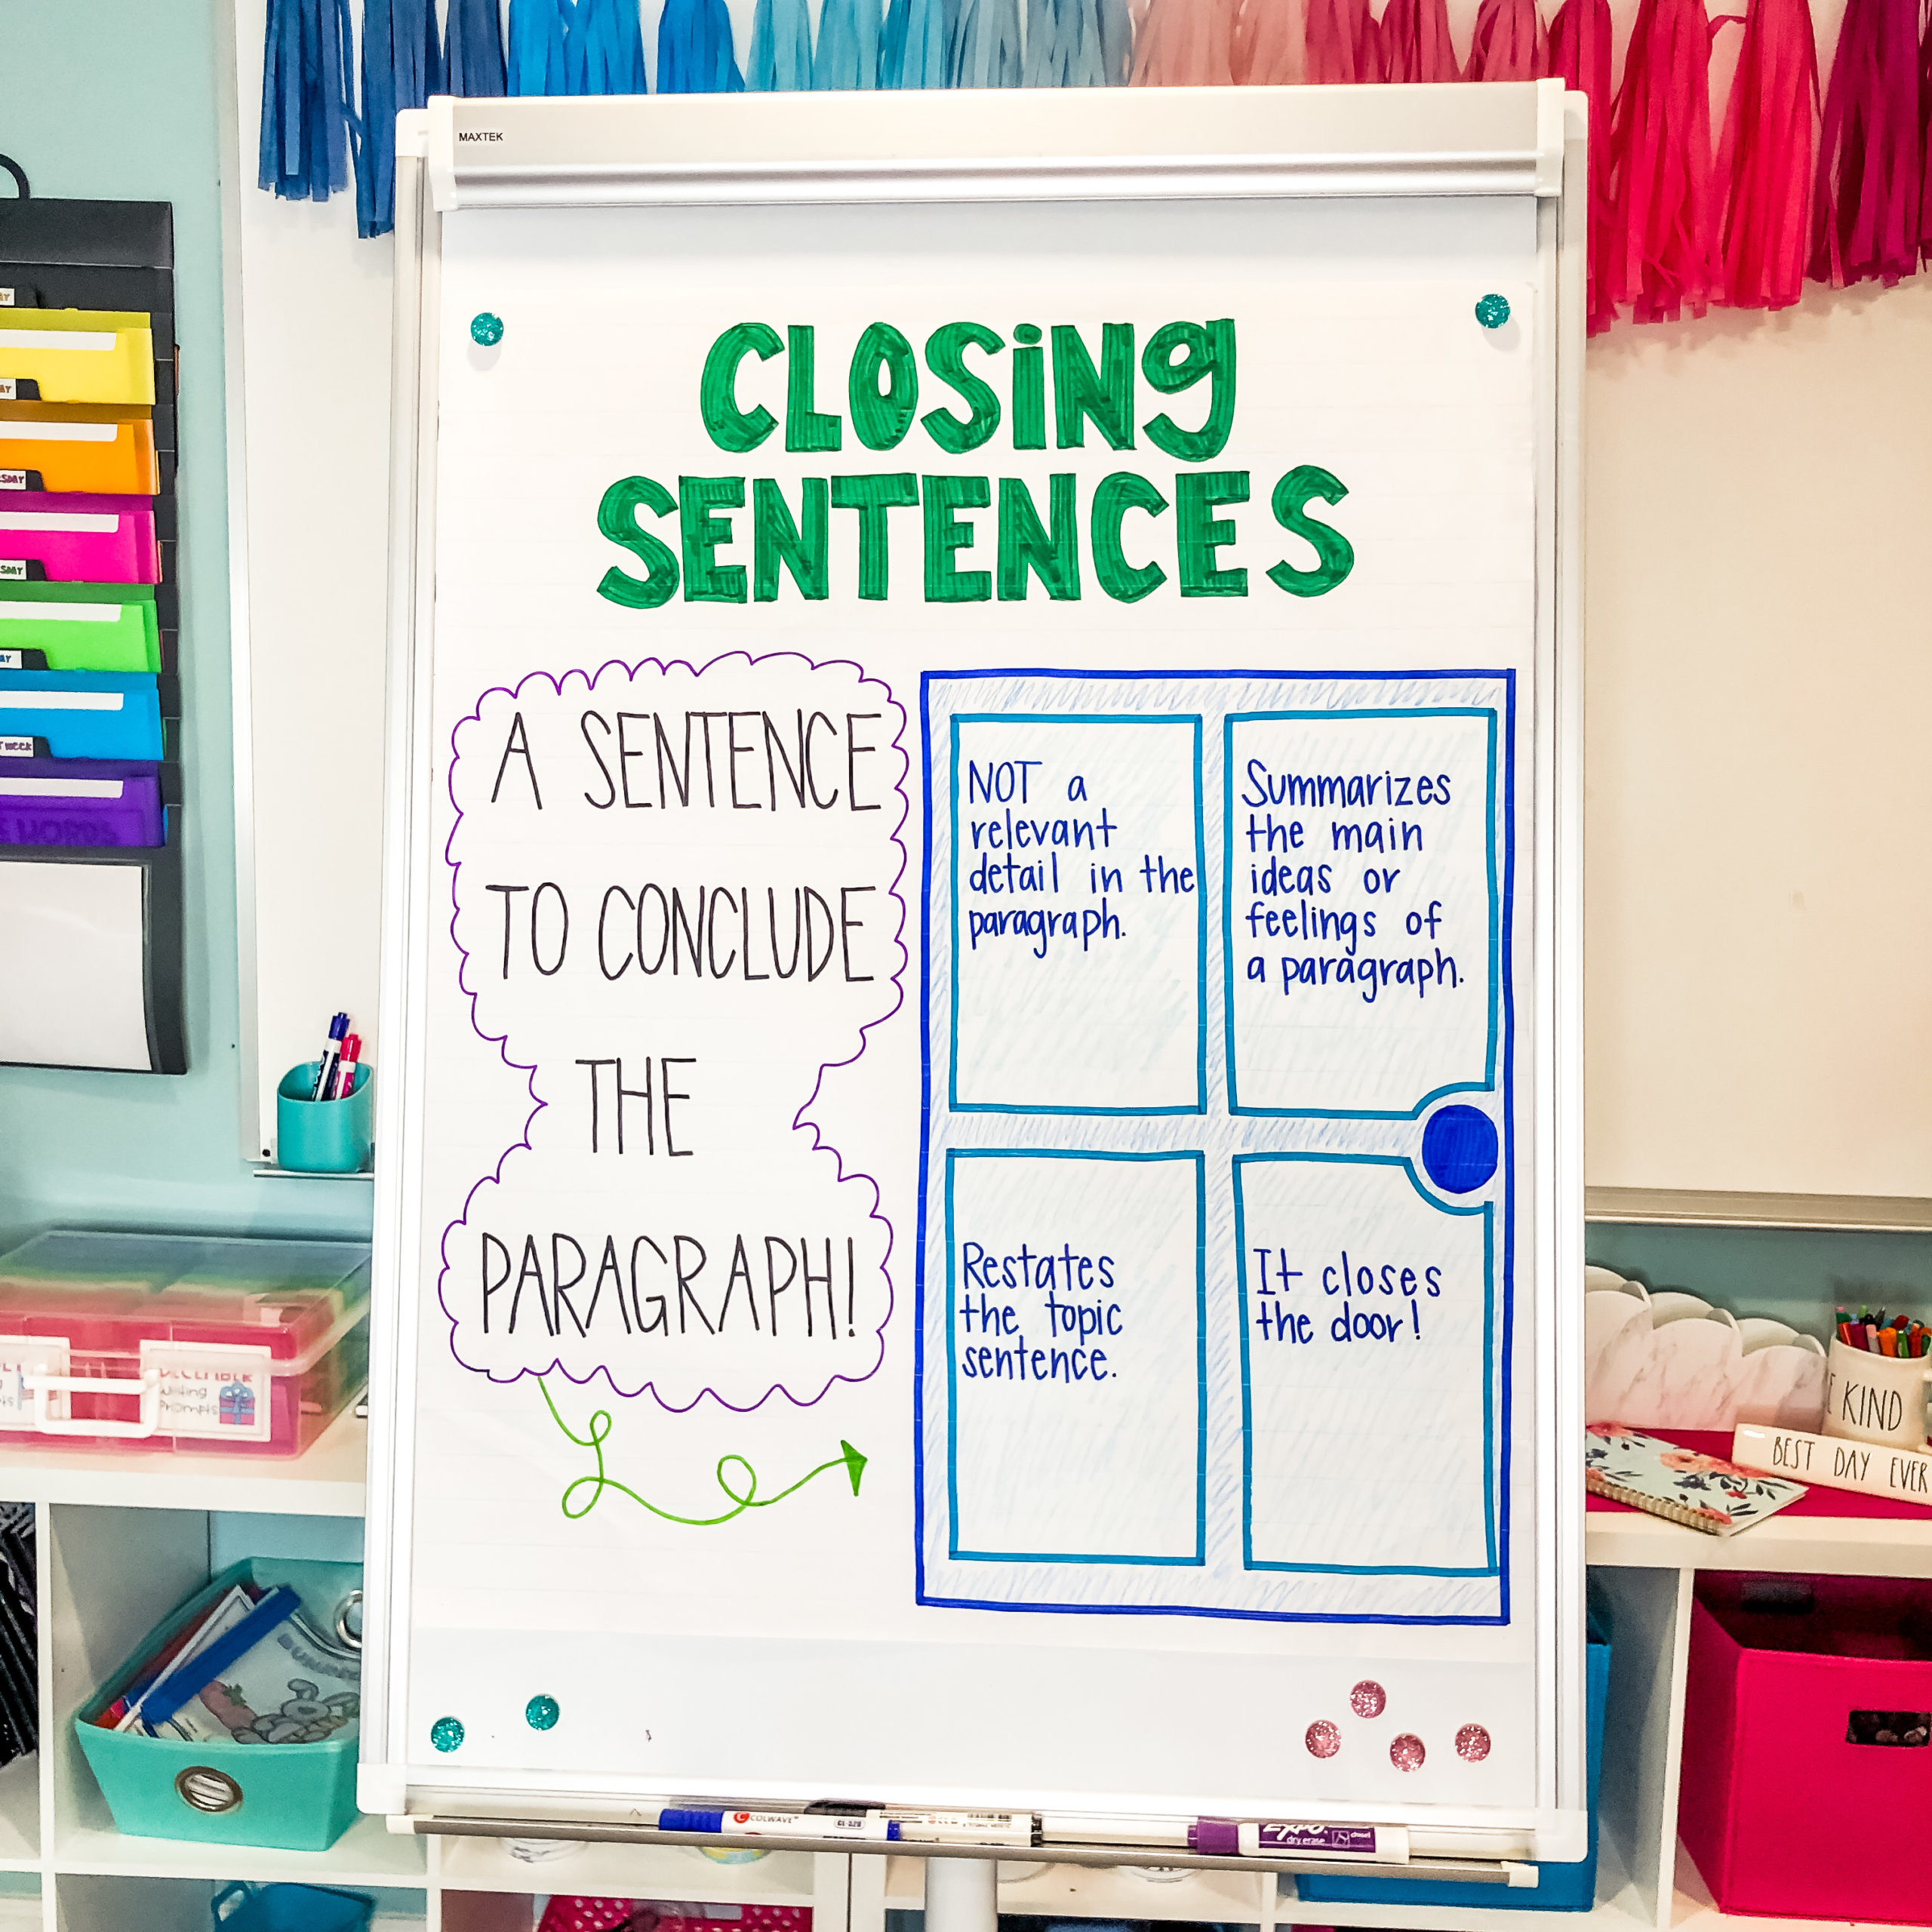 MAXTEK
CLOSiNg
SENTENCES
A SENTENCE
TO CONCLUDE
THE
PARAGRAPH!
NOT a
relevant
detail in the
paragraph.
Summarizes
the main
ideas or
feelings of
a paragraph.
Restates
the topic
sentence.
It closes
the door!
WORDS
DECEMBER
Writing
Prompts
KIND
BEST DAY EVER
COLWAVE
EXPO
dry erase
chisel